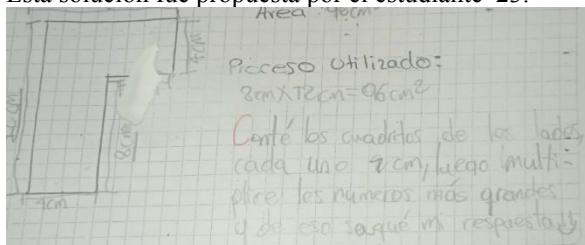 Esta solución fue propuesta por el estudiante 25:
Área 96cm²
4cm
Proceso utilizado:
8cm X 12cm = 96cm²
Conté los cuadritos de los lados,
cada uno 1 cm, luego multi-
plicé los números más grandes
y de eso saqué mi respuesta
12cm
8cm
4cm